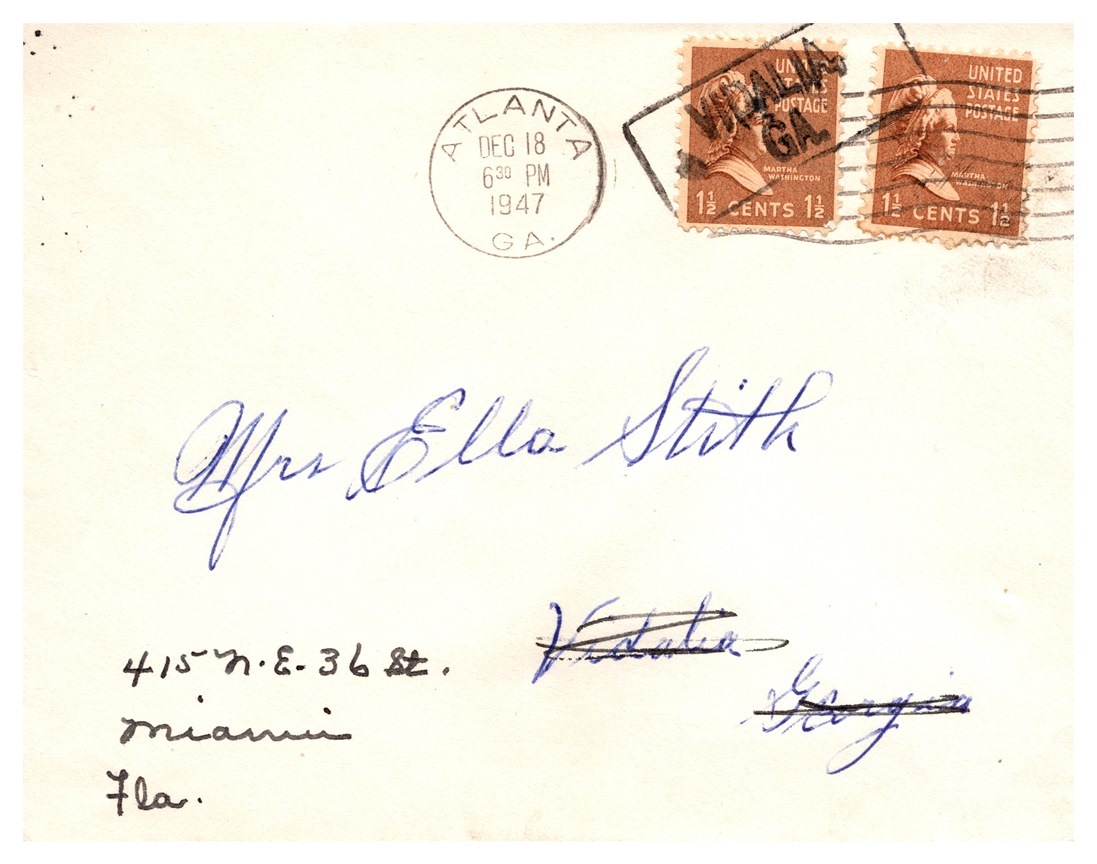 ATLANTA
DEC 18
6 30 PM
1947
GA.
VIDALIA,
GA.
UNITED
STATES
POSTAGE
MARTHA
WASHINGTON
1½ CENTS 1½
UNITED
STATES
POSTAGE
MARTHA
WASHINGTON
1½ CENTS 1½
Mrs Ella Stith
Vidalia
Georgia
415 N.E. 36 St.
Miami
Fla.